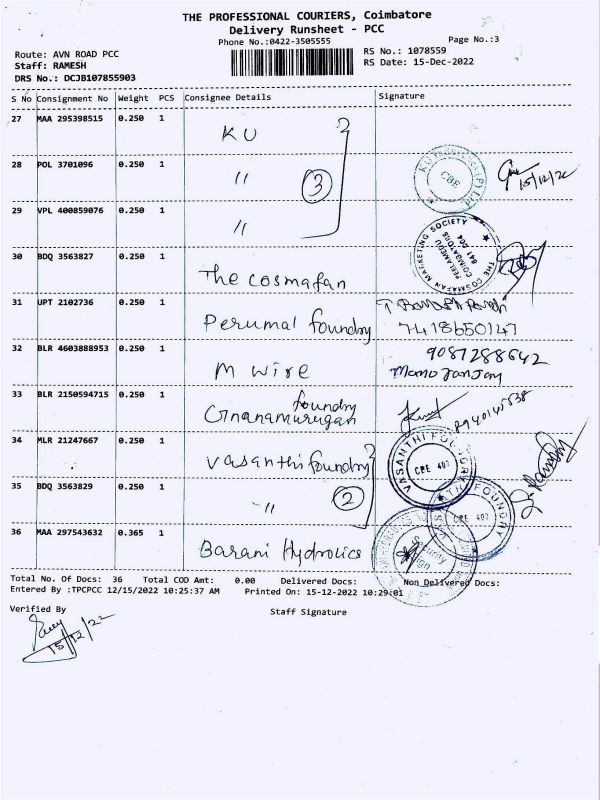 THE PROFESSIONAL COURIERS, Coimbatore
Delivery Runsheet - PCC
Phone No.:0422-3505555
Page No.:3
Route: AVN ROAD PCC
RS No.: 1078559
Staff: RAMESH
RS Date: 15-Dec-2022
DRS No.: DCJB107855903
S No Consignment No Weight PCS Consignee Details Signature
27 MAA 295398515 0.250 1 KU
28 POL 3701096 0.250 1 〃 3
CBE
15/12/22
29 VPL 400859076 0.250 1 〃
THE COSMAFAN MARKETING SOCIETY
PEELAMEDU
COIMBATORE
641 004
30 BDQ 3563827 0.250 1 The Cosmafan
31 UPT 2102736 0.250 1 Perumal foundry
7418650147
32 BLR 4603888953 0.250 1 M wire
9087288642
33 BLR 2150594715 0.250 1 Gnanamurugan foundry
34 MLR 21247667 0.250 1 Vasanthi foundry
VASANTHI FOUNDRY
CBE 407
35 BDQ 3563829 0.250 1 〃 2
FOUNDRY
CBE 407
36 MAA 297543632 0.365 1 Barani Hydrolics
Security
Total No. Of Docs: 36 Total COD Amt: 0.00 Delivered Docs: Non Delivered Docs:
Entered By :TPCPCC 12/15/2022 10:25:37 AM Printed On: 15-12-2022 10:29:01
Verified By
Staff Signature
15/12/22